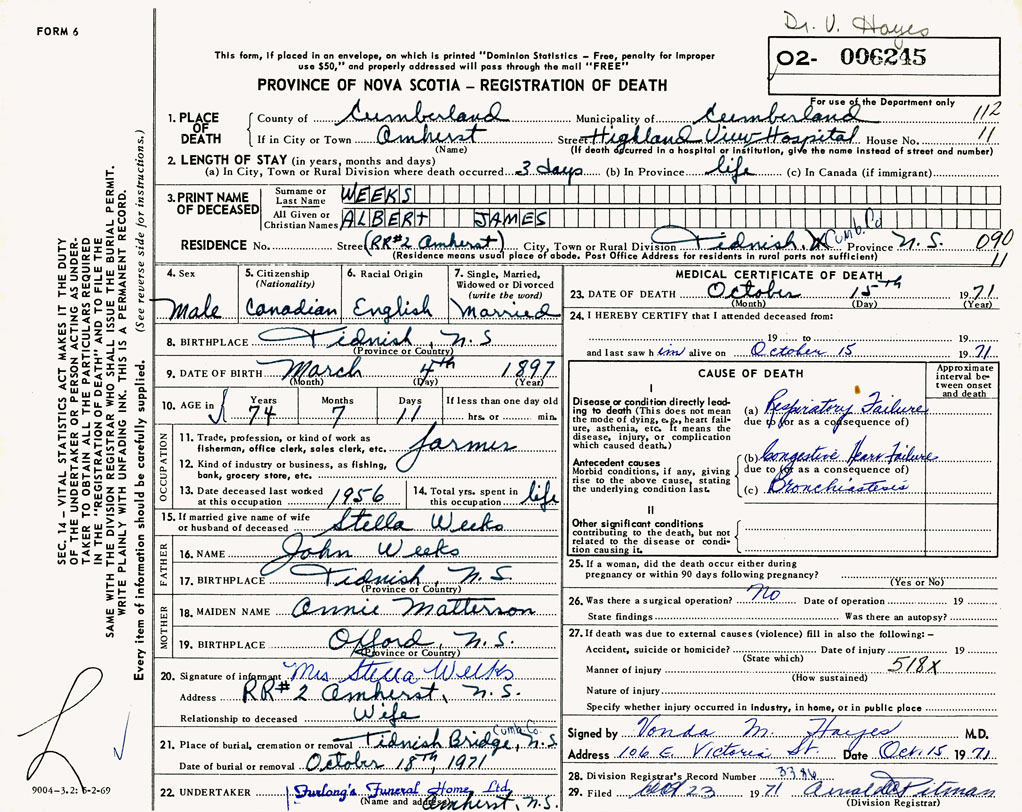 FORM 6
Dr. V. Hayes
This form, if placed in an envelope, on which is printed "Dominion Statistics – Free, penalty for improper
use $50," and properly addressed will pass through the mail "FREE"
02- 006245
PROVINCE OF NOVA SCOTIA – REGISTRATION OF DEATH
For use of the Department only
1. PLACE OF DEATH County of Cumberland Municipality of Cumberland 112
If in City or Town Amherst Street Highland View Hospital House No. 11
(Name) (If death occurred in a hospital or institution, give the name instead of street and number)
2. LENGTH OF STAY (in years, months and days)
(a) In City, Town or Rural Division where death occurred 3 days (b) In Province life (c) In Canada (if immigrant)
3. PRINT NAME OF DECEASED Surname or Last Name WEEKS
All Given or Christian Names ALBERT JAMES
Cumb. Co
RESIDENCE No. Street (RR#2 Amherst) City, Town or Rural Division Tidnish, Province N.S. 090
(Residence means usual place of abode. Post Office Address for residents in rural parts not sufficient) 11
4. Sex Male
5. Citizenship (Nationality) Canadian
6. Racial Origin English
7. Single, Married, Widowed or Divorced (write the word) Married
8. BIRTHPLACE Tidnish, N.S
(Province or Country)
9. DATE OF BIRTH March 4th 1897
(Month) (Day) (Year)
10. AGE in Years Months Days If less than one day old
74 7 11 hrs. or min.
OCCUPATION
11. Trade, profession, or kind of work as
fisherman, office clerk, sales clerk, etc. farmer
12. Kind of industry or business, as fishing,
bank, grocery store, etc.
13. Date deceased last worked at this occupation 1956
14. Total yrs. spent in this occupation life
15. If married give name of wife
or husband of deceased Stella Weeks
FATHER
16. NAME John Weeks
17. BIRTHPLACE Tidnish, N.S.
(Province or Country)
MOTHER
18. MAIDEN NAME Annie Matterson
19. BIRTHPLACE , N.S.
(Province or Country)
20. Signature of informant Mrs Stella Weeks
Address RR#2 Amherst, N.S.
Relationship to deceased Wife
Cumb. Co.
21. Place of burial, cremation or removal Tidnish Bridge, N.S
Date of burial or removal October 18th, 1971
22. UNDERTAKER Furlong's Funeral Home Ltd
(Name and address) Amherst, N.S.
MEDICAL CERTIFICATE OF DEATH
23. DATE OF DEATH October 15th 1971
(Month) (Day) (Year)
24. I HEREBY CERTIFY that I attended deceased from:
19 to 19
and last saw him alive on October 15 1971
CAUSE OF DEATH
Approximate interval between onset and death
I
Disease or condition directly leading
to death (This does not mean
the mode of dying, e.g., heart failure,
asthenia, etc. It means the
disease, injury, or complication
which caused death.)
(a) Respiratory Failure
due to (or as a consequence of)
Antecedent causes
Morbid conditions, if any, giving
rise to the above cause, stating
the underlying condition last.
(b) Congestive Heart Failure
due to (or as a consequence of)
(c) Bronchiastesis
II
Other significant conditions
contributing to the death, but not
related to the disease or condition
causing it.
25. If a woman, did the death occur either during
pregnancy or within 90 days following pregnancy?
(Yes or No)
26. Was there a surgical operation? NO Date of operation 19
State findings Was there an autopsy?
27. If death was due to external causes (violence) fill in also the following: –
Accident, suicide or homicide? Date of injury 19
(State which)
Manner of injury 518X
(How sustained)
Nature of injury
Specify whether injury occurred in industry, in home, or in public place
Signed by Vonda M. Hayes M.D.
Address 106 E. Victoria St. Date Oct. 15 1971
28. Division Registrar's Record Number 3386
29. Filed Oct 23 1971 Pitman
(Division Registrar)
SEC. 14 – VITAL STATISTICS ACT MAKES IT THE DUTY
OF THE UNDERTAKER OR PERSON ACTING AS UNDERTAKER
TO OBTAIN ALL THE PARTICULARS REQUIRED
IN THE "REGISTRATION OF DEATH" AND TO FILE THE
SAME WITH THE DIVISION REGISTRAR WHO SHALL ISSUE THE BURIAL PERMIT.
WRITE PLAINLY WITH UNFADING INK. THIS IS A PERMANENT RECORD.
Every item of information should be carefully supplied. (See reverse side for instructions.)
9004–3.2: 6-2-69